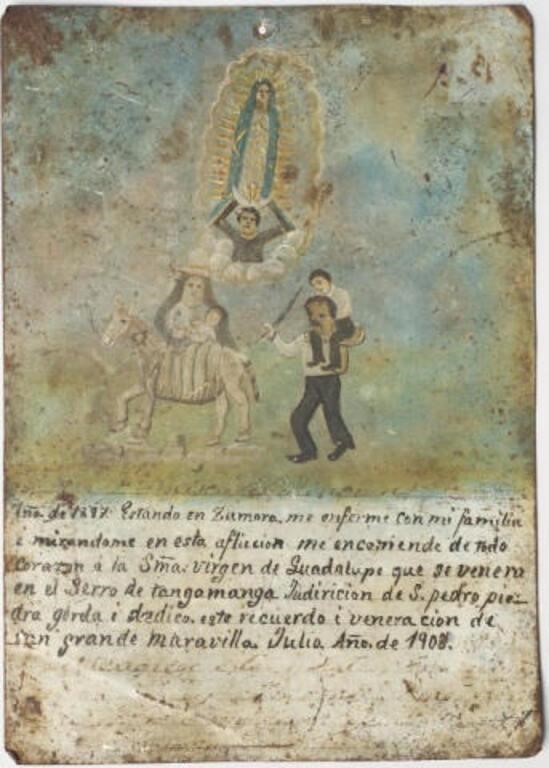 Año de 1897. Estando en Zamora me enferme con mi familia
e mirandome en esta aflicion me encomiende de todo
corazon á la Sma. Virgen de Guadalupe que se venera
en el Serro de tangamanga Judiricion de S. pedro pie-
dra gorda i dedico este recuerdo i veneracion de
tan grande maravilla. Julio Año. de 1908.